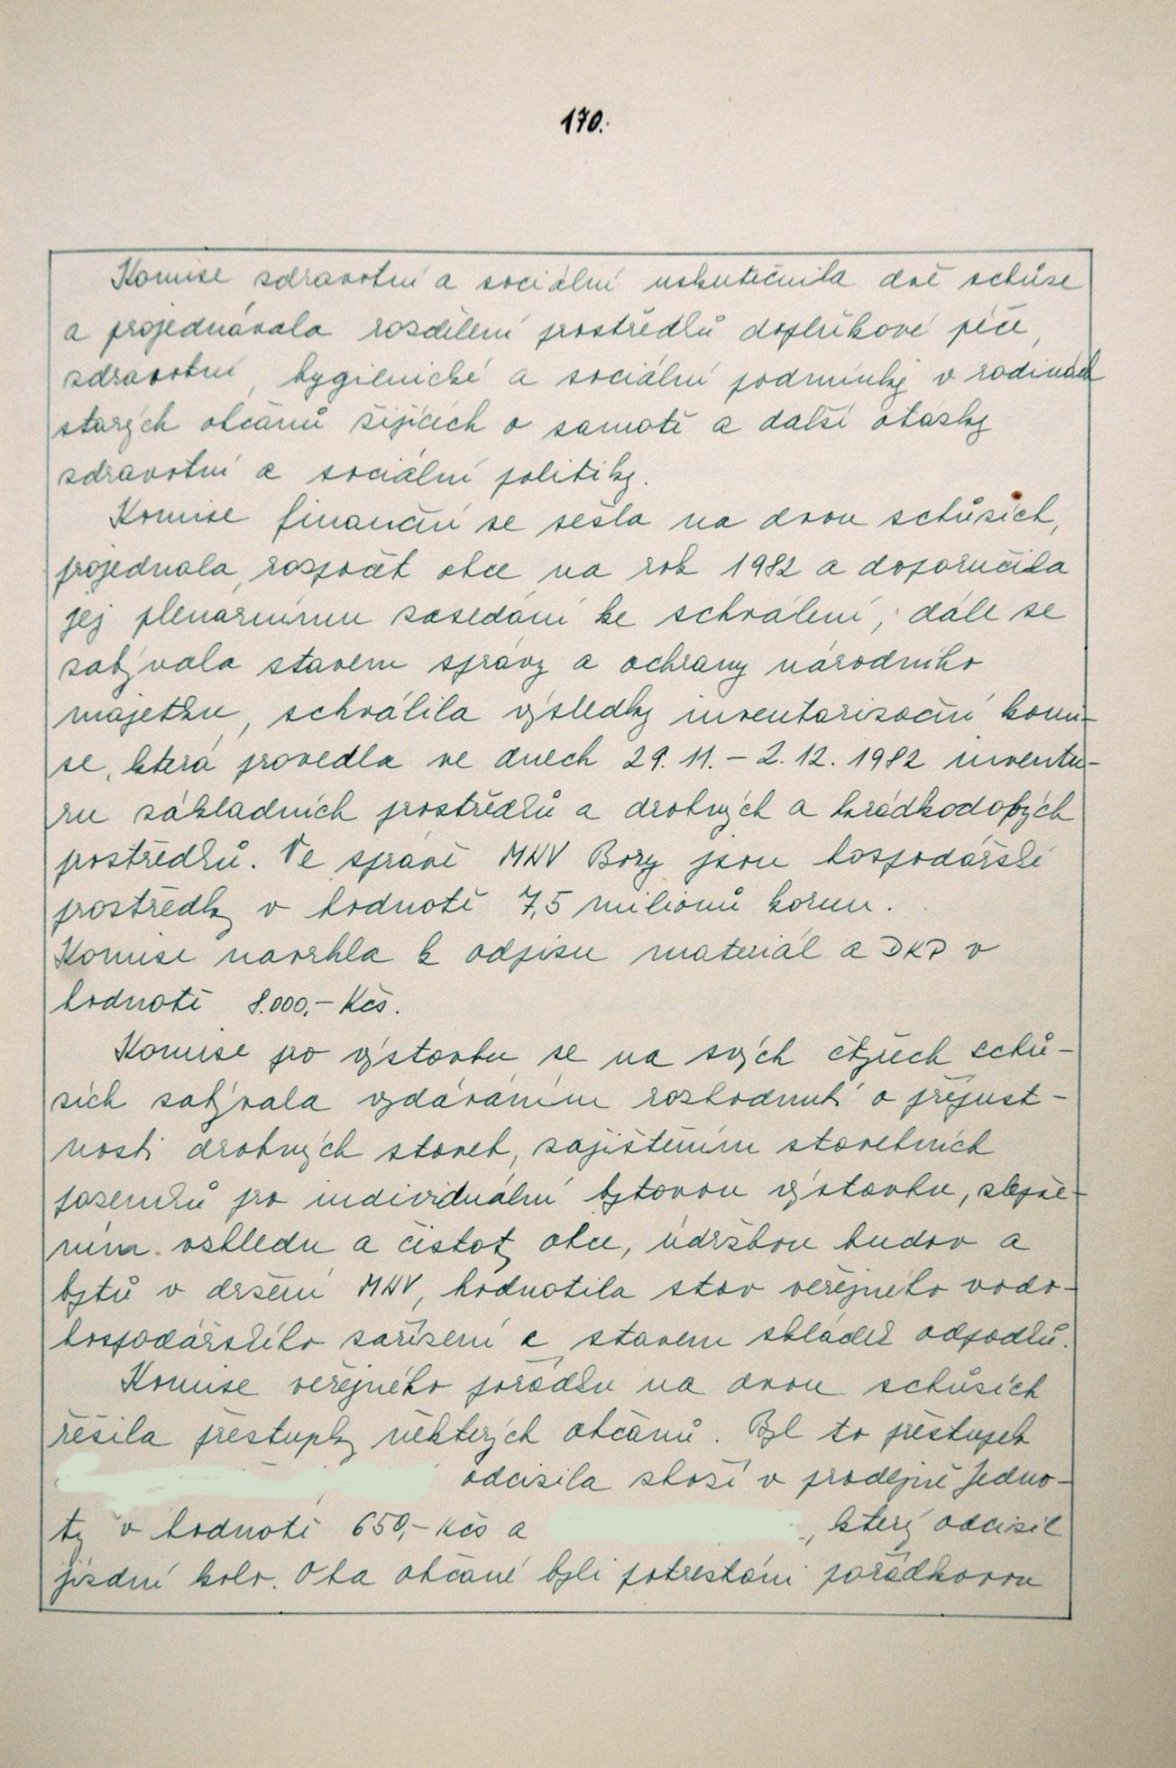 170.
Komise zdravotní a sociální uskutečnila dvě schůze
a projednávala rozdělení prostředků doplňkové péče,
zdravotní, hygienické a sociální podmínky v rodinách
starých občanů žijících o samotě a další otázky
zdravotní a sociální politiky.
Komise finanční se sešla na dvou schůzích,
projednala rozpočet obce na rok 1982 a doporučila
jej plenárnímu zasedání ke schválení, dále se
zabývala stavem správy a ochrany národního
majetku, schválila výsledky inventarizační komi-
se, která provedla ve dnech 29. 11. – 2. 12. 1982 inventu-
ru základních prostředků a drobných a krádkodobých
prostředků. Ve správě MNV Bory jsou hospodářské
prostředky v hodnotě 7,5 milionů korun.
Komise navrhla k odpisu materiál a DKP v
hodnotě 8.000,- Kčs.
Komise pro výstavbu se na svých čtyřech schů-
zích zabývala vydáváním rozhodnutí o přípust-
nosti drobných staveb, zajištěním stavebních
pozemků pro individuální bytovou výstavbu, zlepše-
ním vzhledu a čistoty obce, údržbou budov a
bytů v držení MNV, hodnotila stav veřejného vodo-
hospodářského zařízení a stavem skládek odpadků.
Komise veřejného pořádku na dvou schůzích
řešila přestupky některých občanů. Byl to přestupek
odcizila zboží v prodejně Jedno-
ty v hodnotě 650,- Kčs a , který odcizil
jízdní kolo. Oba občané byli potrestáni pořádkovou